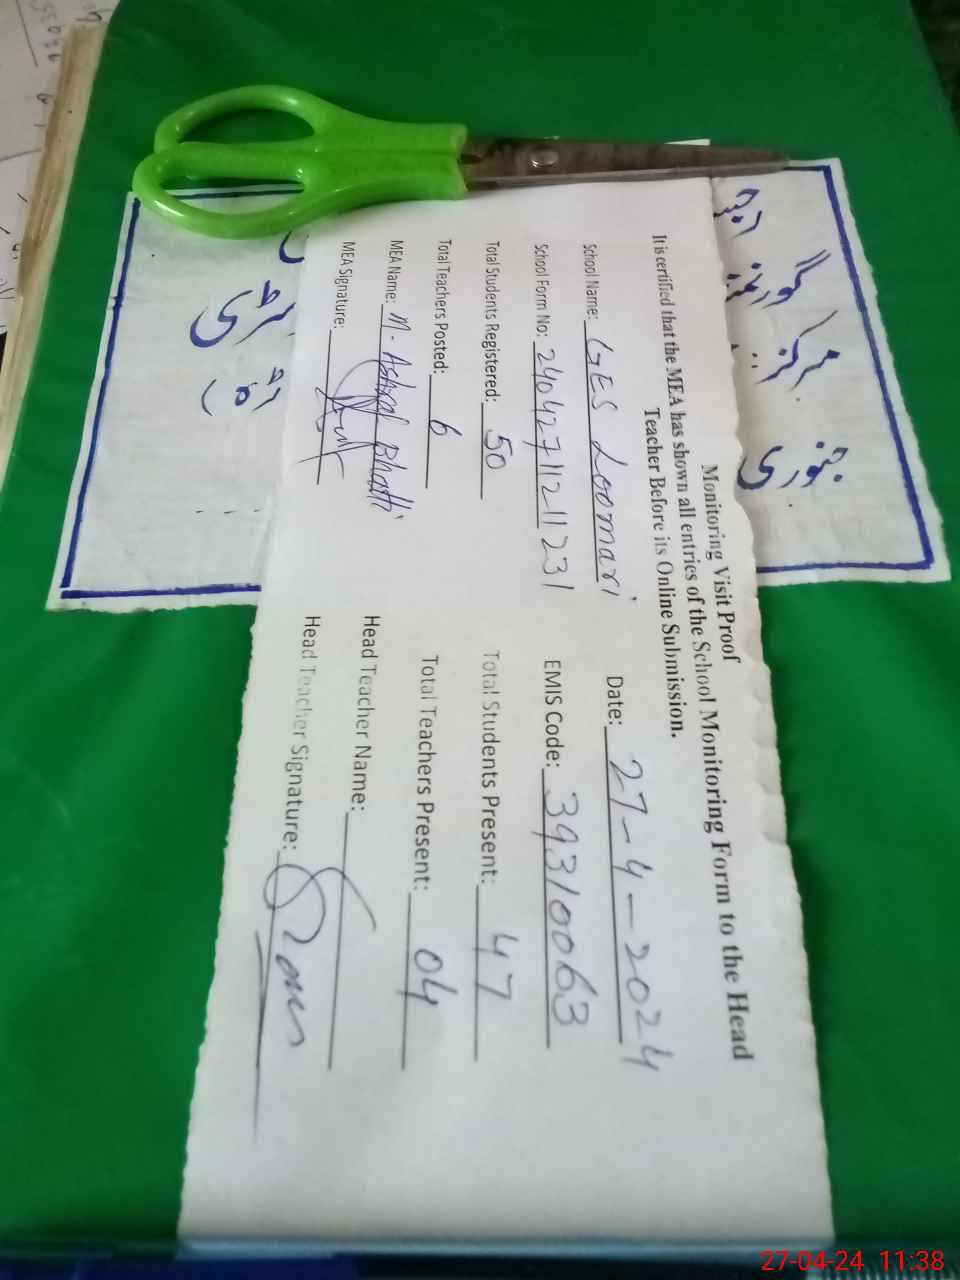 Monitoring Visit Proof
It is certified that the MEA has shown all entries of the School Monitoring Form to the Head
Teacher Before its Online Submission.
School Name: GES Loomari Date: 27-4-2024
School Form No: 24042711211231 EMIS Code: 39310063
Total Students Registered: 50 Total Students Present: 47
Total Teachers Posted: 6 Total Teachers Present: 04
MEA Name: M. Ashraf Bhatti Head Teacher Name:
MEA Signature: Head Teacher Signature:
جنوری
27-04-24 11:38